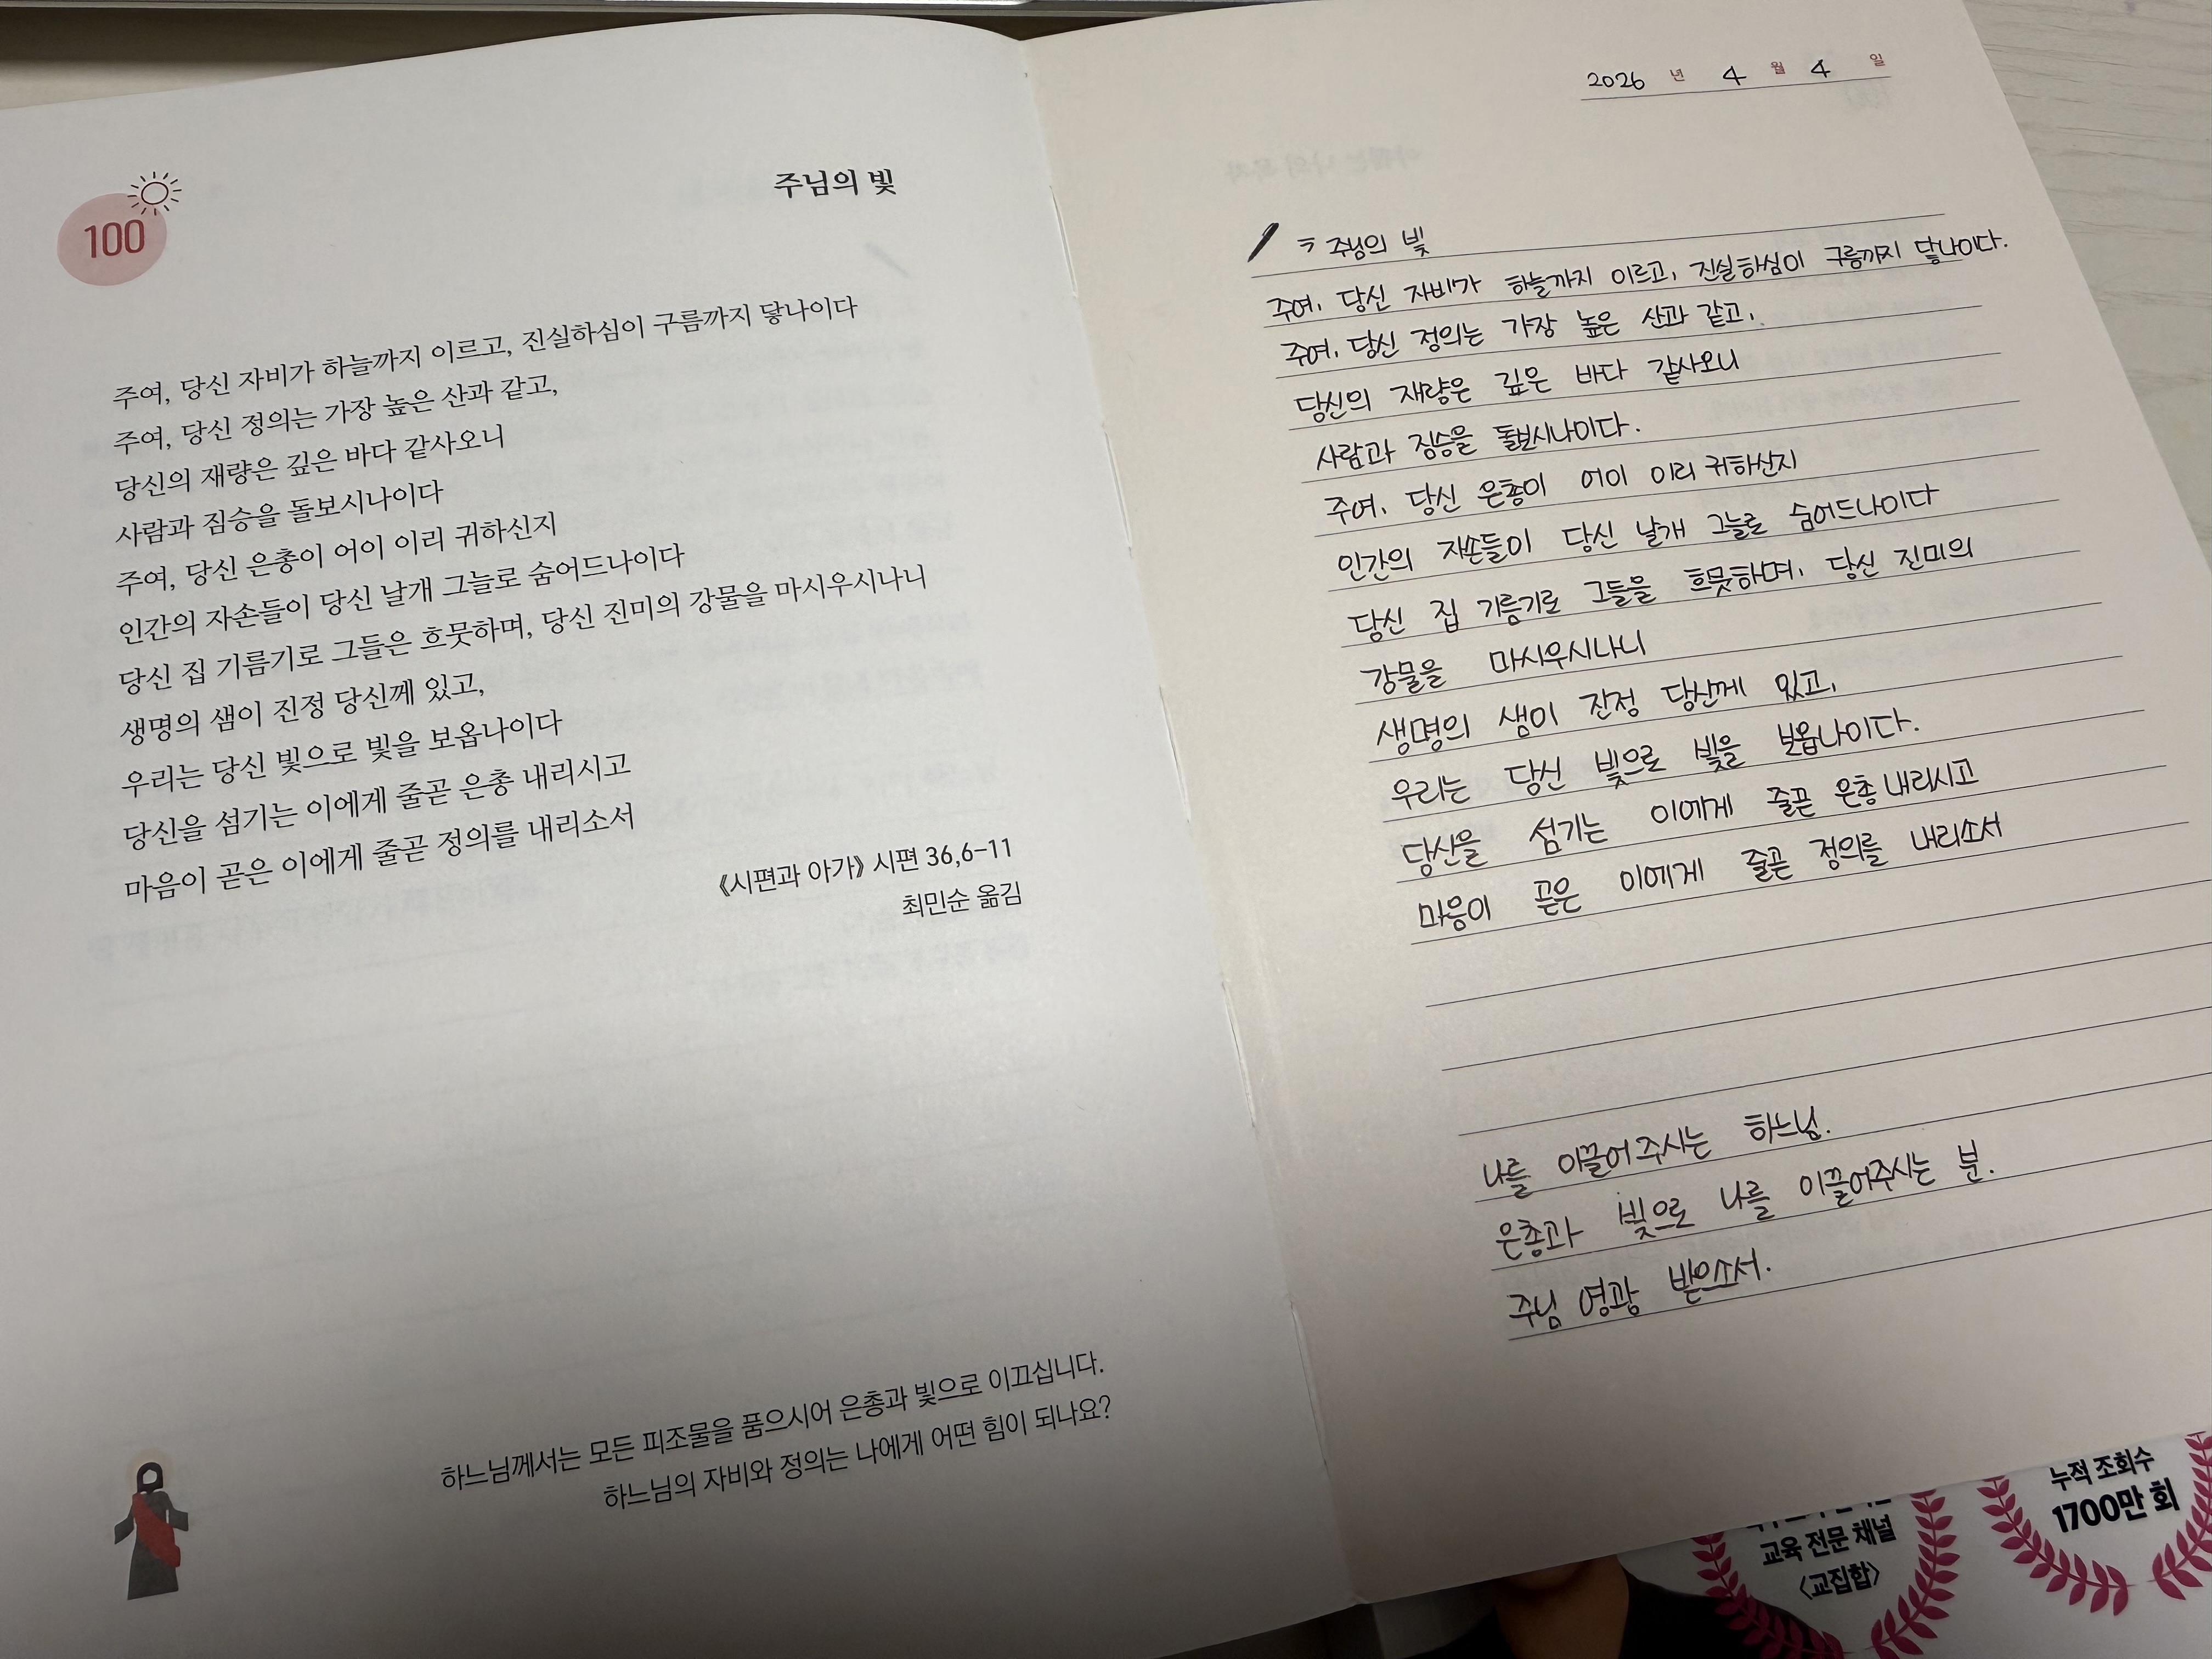 100
주님의 빛
주여, 당신 자비가 하늘까지 이르고, 진실하심이 구름까지 닿나이다
주여, 당신 정의는 가장 높은 산과 같고,
당신의 재량은 깊은 바다 같사오니
사람과 짐승을 돌보시나이다
주여, 당신 은총이 어이 이리 귀하신지
인간의 자손들이 당신 날개 그늘로 숨어드나이다
당신 집 기름기로 그들은 흐뭇하며, 당신 진미의 강물을 마시우시나니
생명의 샘이 진정 당신께 있고,
우리는 당신 빛으로 빛을 보옵나이다
당신을 섬기는 이에게 줄곧 은총 내리시고
마음이 곧은 이에게 줄곧 정의를 내리소서
《시편과 아가》 시편 36,6-11
최민순 옮김
하느님께서는 모든 피조물을 품으시어 은총과 빛으로 이끄십니다.
하느님의 자비와 정의는 나에게 어떤 힘이 되나요?
2026 년 4 월 4 일
주님의 빛
주여, 당신 자비가 하늘까지 이르고, 진실하심이 구름까지 닿나이다.
주여, 당신 정의는 가장 높은 산과 같고,
당신의 재량은 깊은 바다 같사오니
사람과 짐승을 돌보시나이다.
주여, 당신 은총이 어이 이리 귀하신지
인간의 자손들이 당신 날개 그늘로 숨어드나이다
당신 집 기름기로 그들을 흐뭇하며, 당신 진미의
강물을 마시우시나니
생명의 샘이 진정 당신께 있고,
우리는 당신 빛으로 빛을 보옵나이다.
당신을 섬기는 이에게 줄곧 은총 내리시고
마음이 곧은 이에게 줄곧 정의를 내리소서
나를 이끌어주시는 하느님.
은총과 빛으로 나를 이끌어주시는 분.
주님 영광 받으소서.
누적 조회수
1700만 회
교육 전문 채널
〈교집합〉